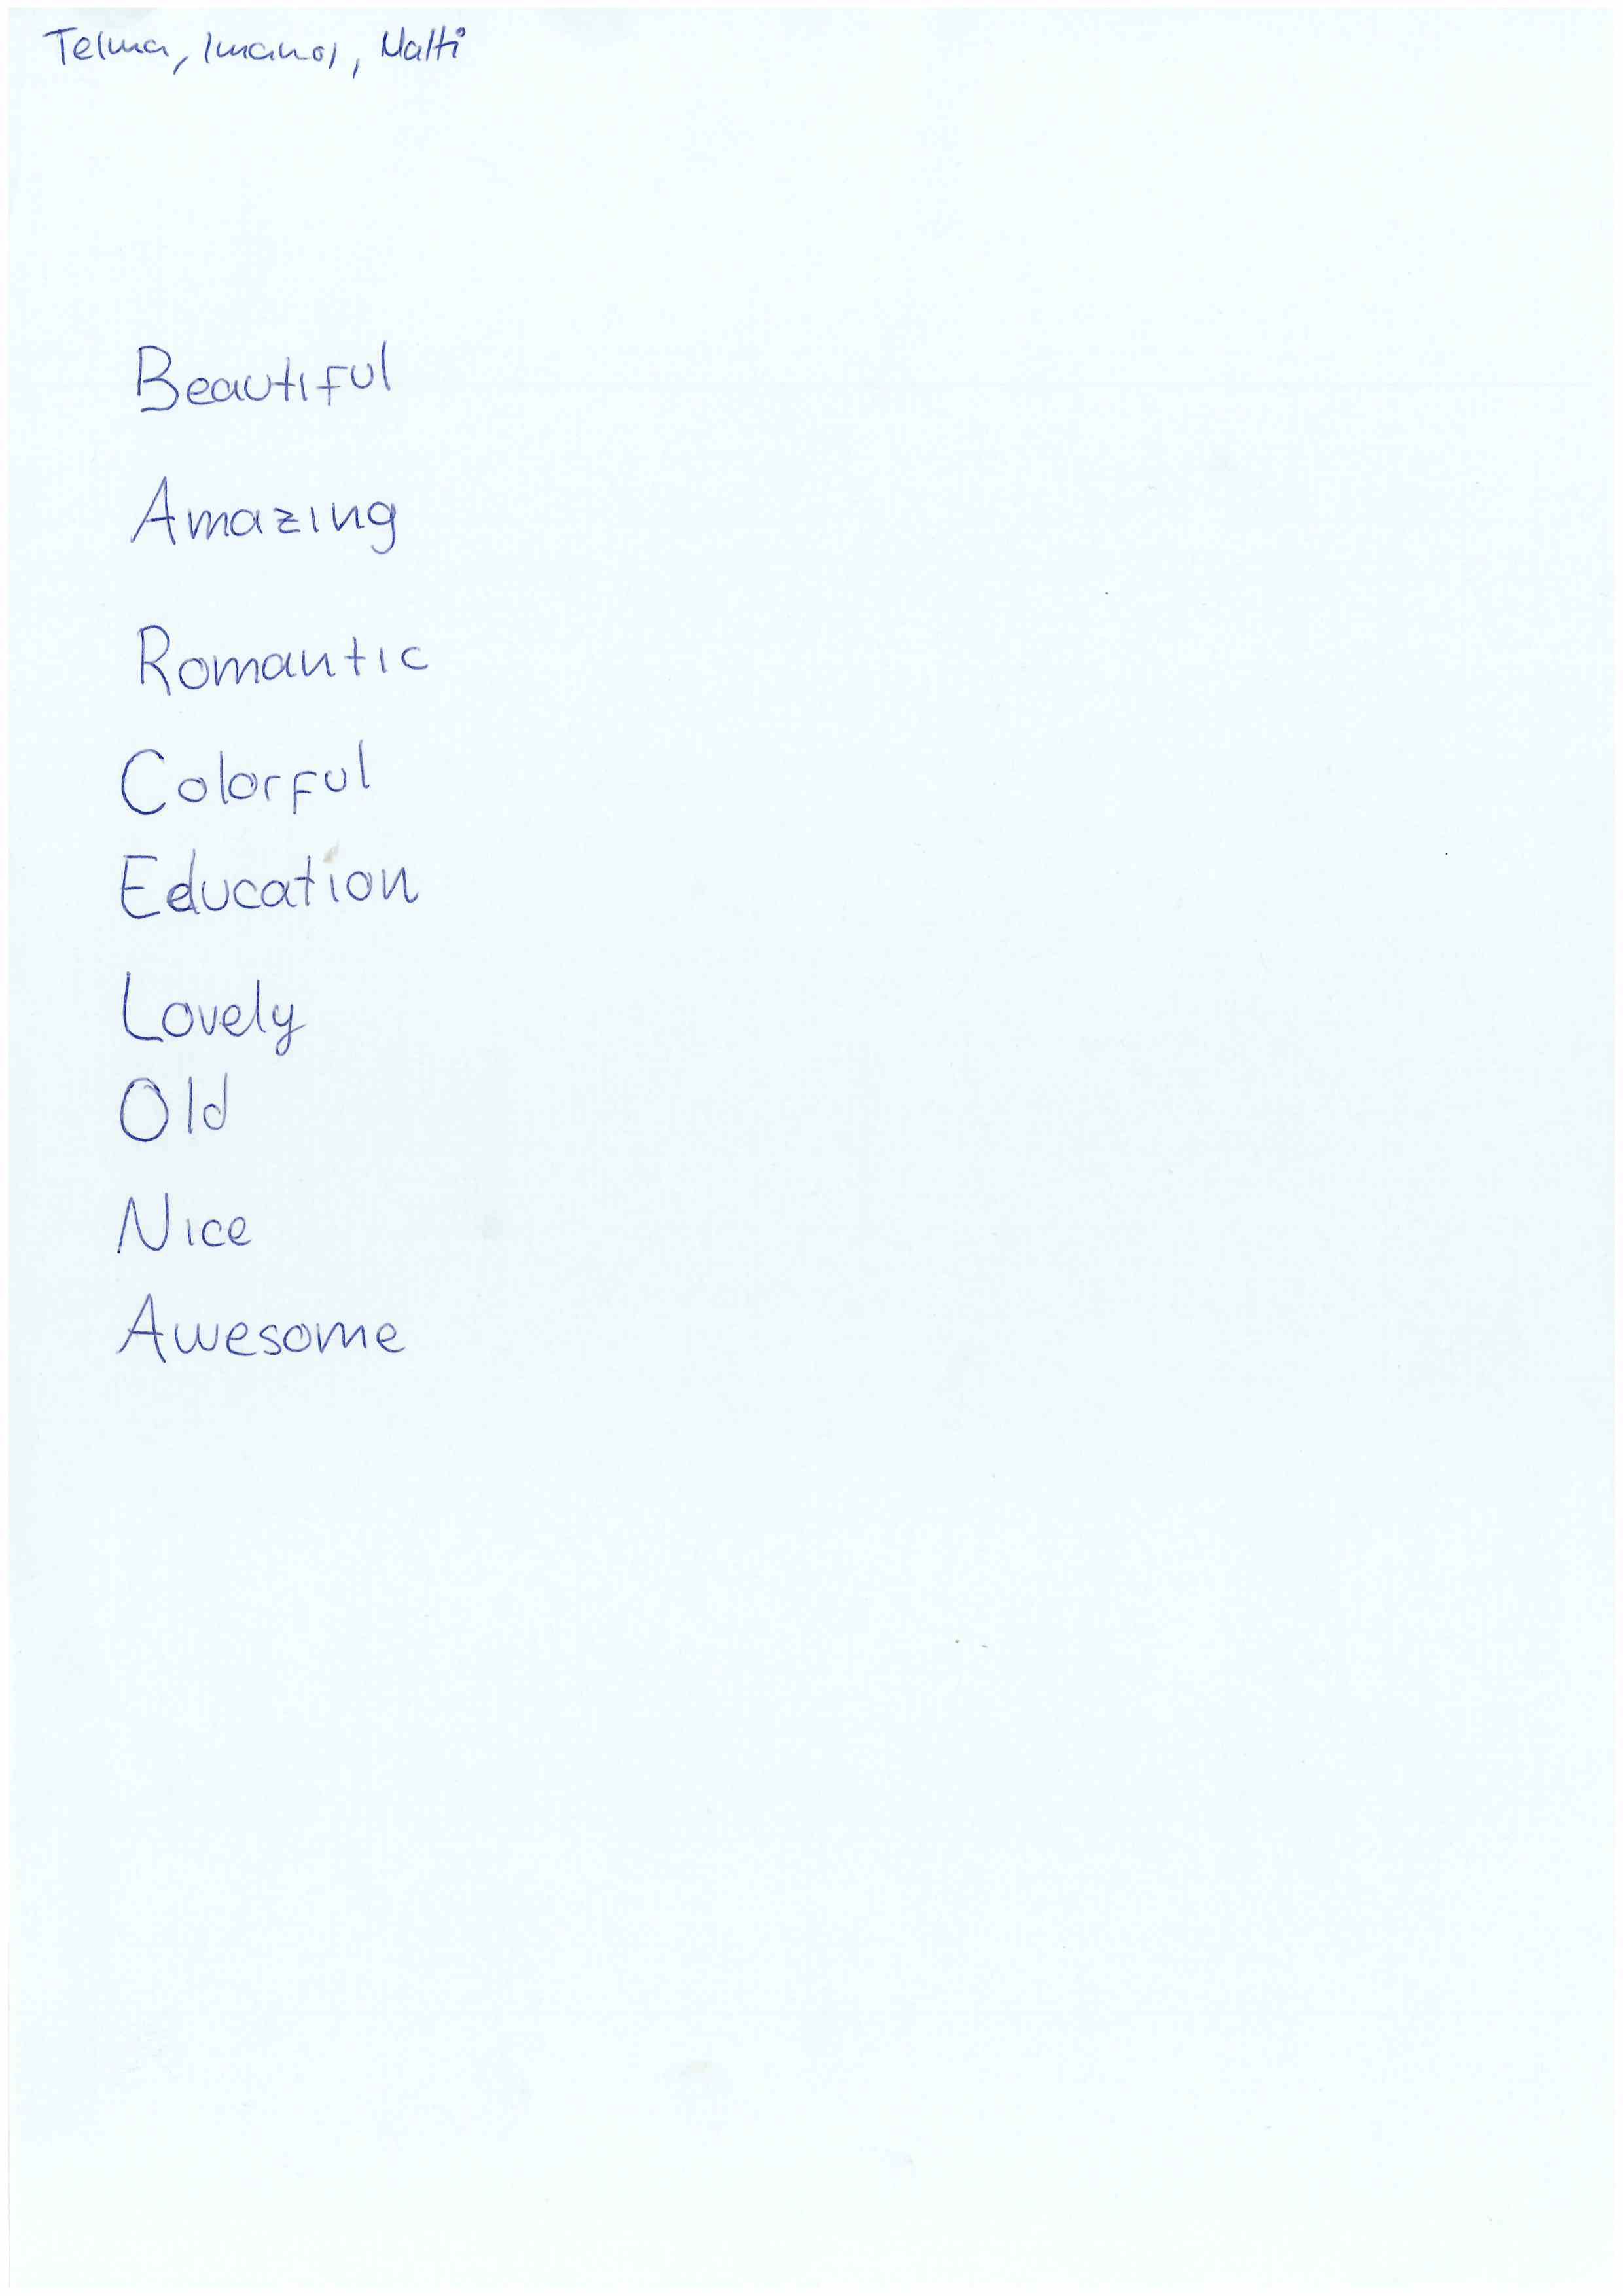 Telma, Imanol, Malti
Beautiful
Amazing
Romantic
Colorful
Education
Lovely
Old
Nice
Awesome